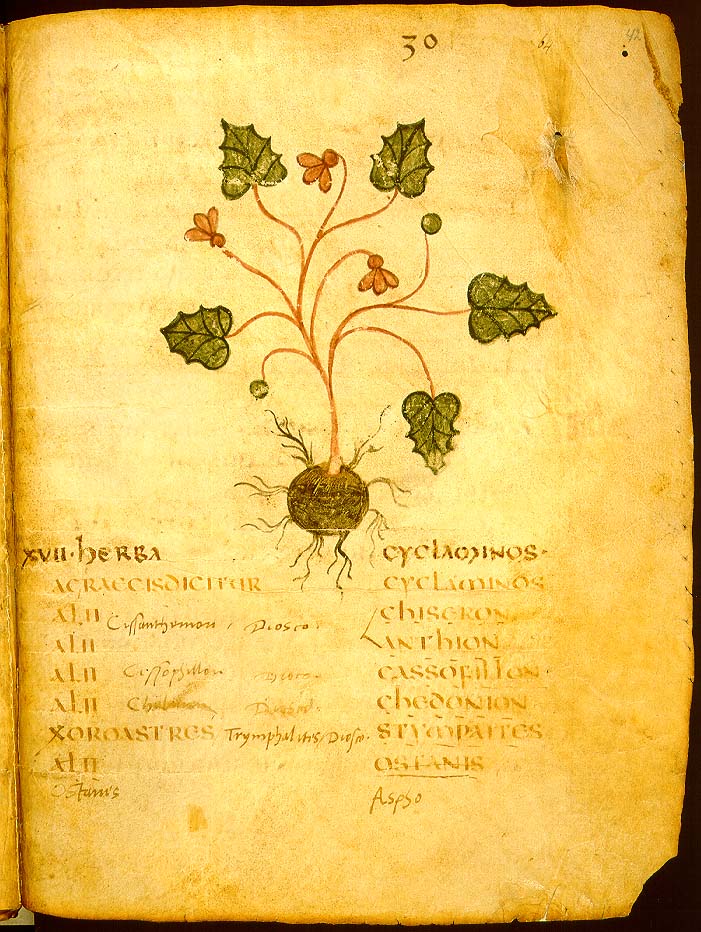 30 64 42
XVII · HERBA CYCLAMINOS ·
AGRAECISDICITUR CYCLAMINOS
ALII Cissanthemon · Diosco · CHISERON
ALII ANTHION
ALII Cissophillon Diosco · CASSOFILLON ·
ALII CHEDONION
XOROASTRES Trymphalites, Diosco · STYMPAITES
ALII OSTANIS
Ostanis Aspho